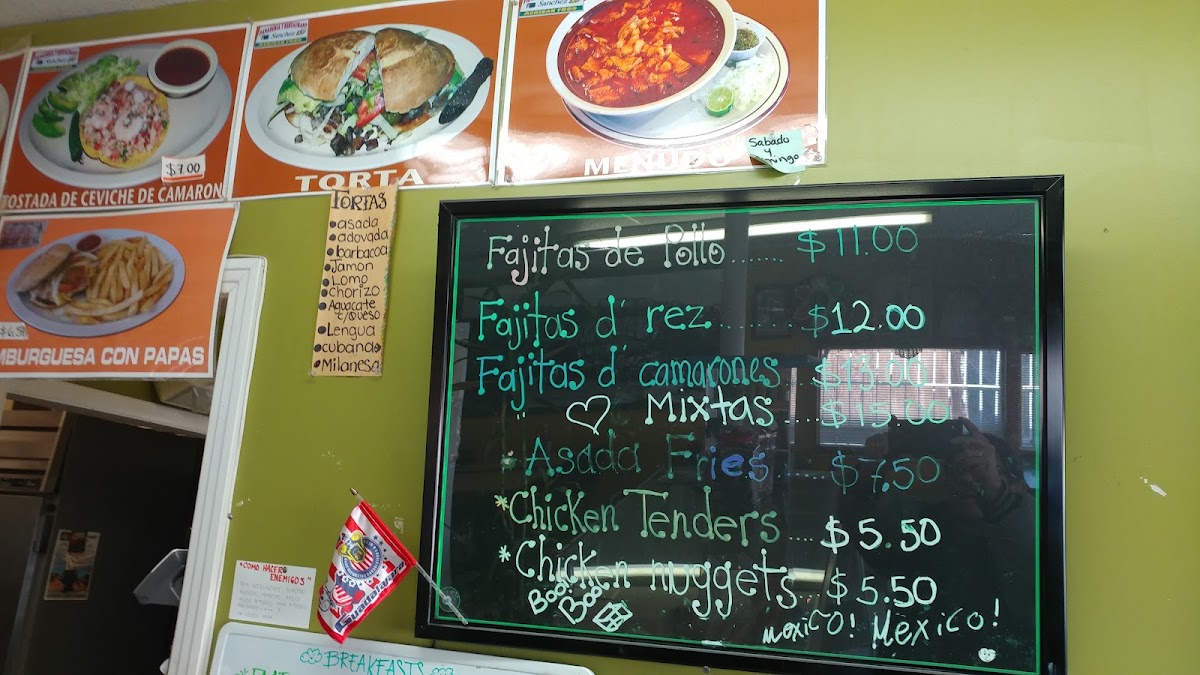 Sanchez
$7.00
OSTADA DE CEVICHE DE CAMARON
Sanchez
TORTA
Sanchez
MENUDO
Sabado
y
$6.50
MBURGUESA CON PAPAS
TORTAS
asada
adovada
barbacoa
Jamon
Lomo
Chorizo
Aguacate
c/Queso
Lengua
cubana
Milanesa
Fajitas de Pollo....... $11.00
Fajitas d' rez......... $12.00
Fajitas d' camarones... $13.00
" ♡ Mixtas.... $15.00
Asada Fries.... $7.50
*Chicken Tenders.... $5.50
*Chicken nuggets... $5.50
Boo!
Boo!
mexico! Mexico!
"COMO HACER
ENEMIGOS"
Guadalajara
BREAKFASTS